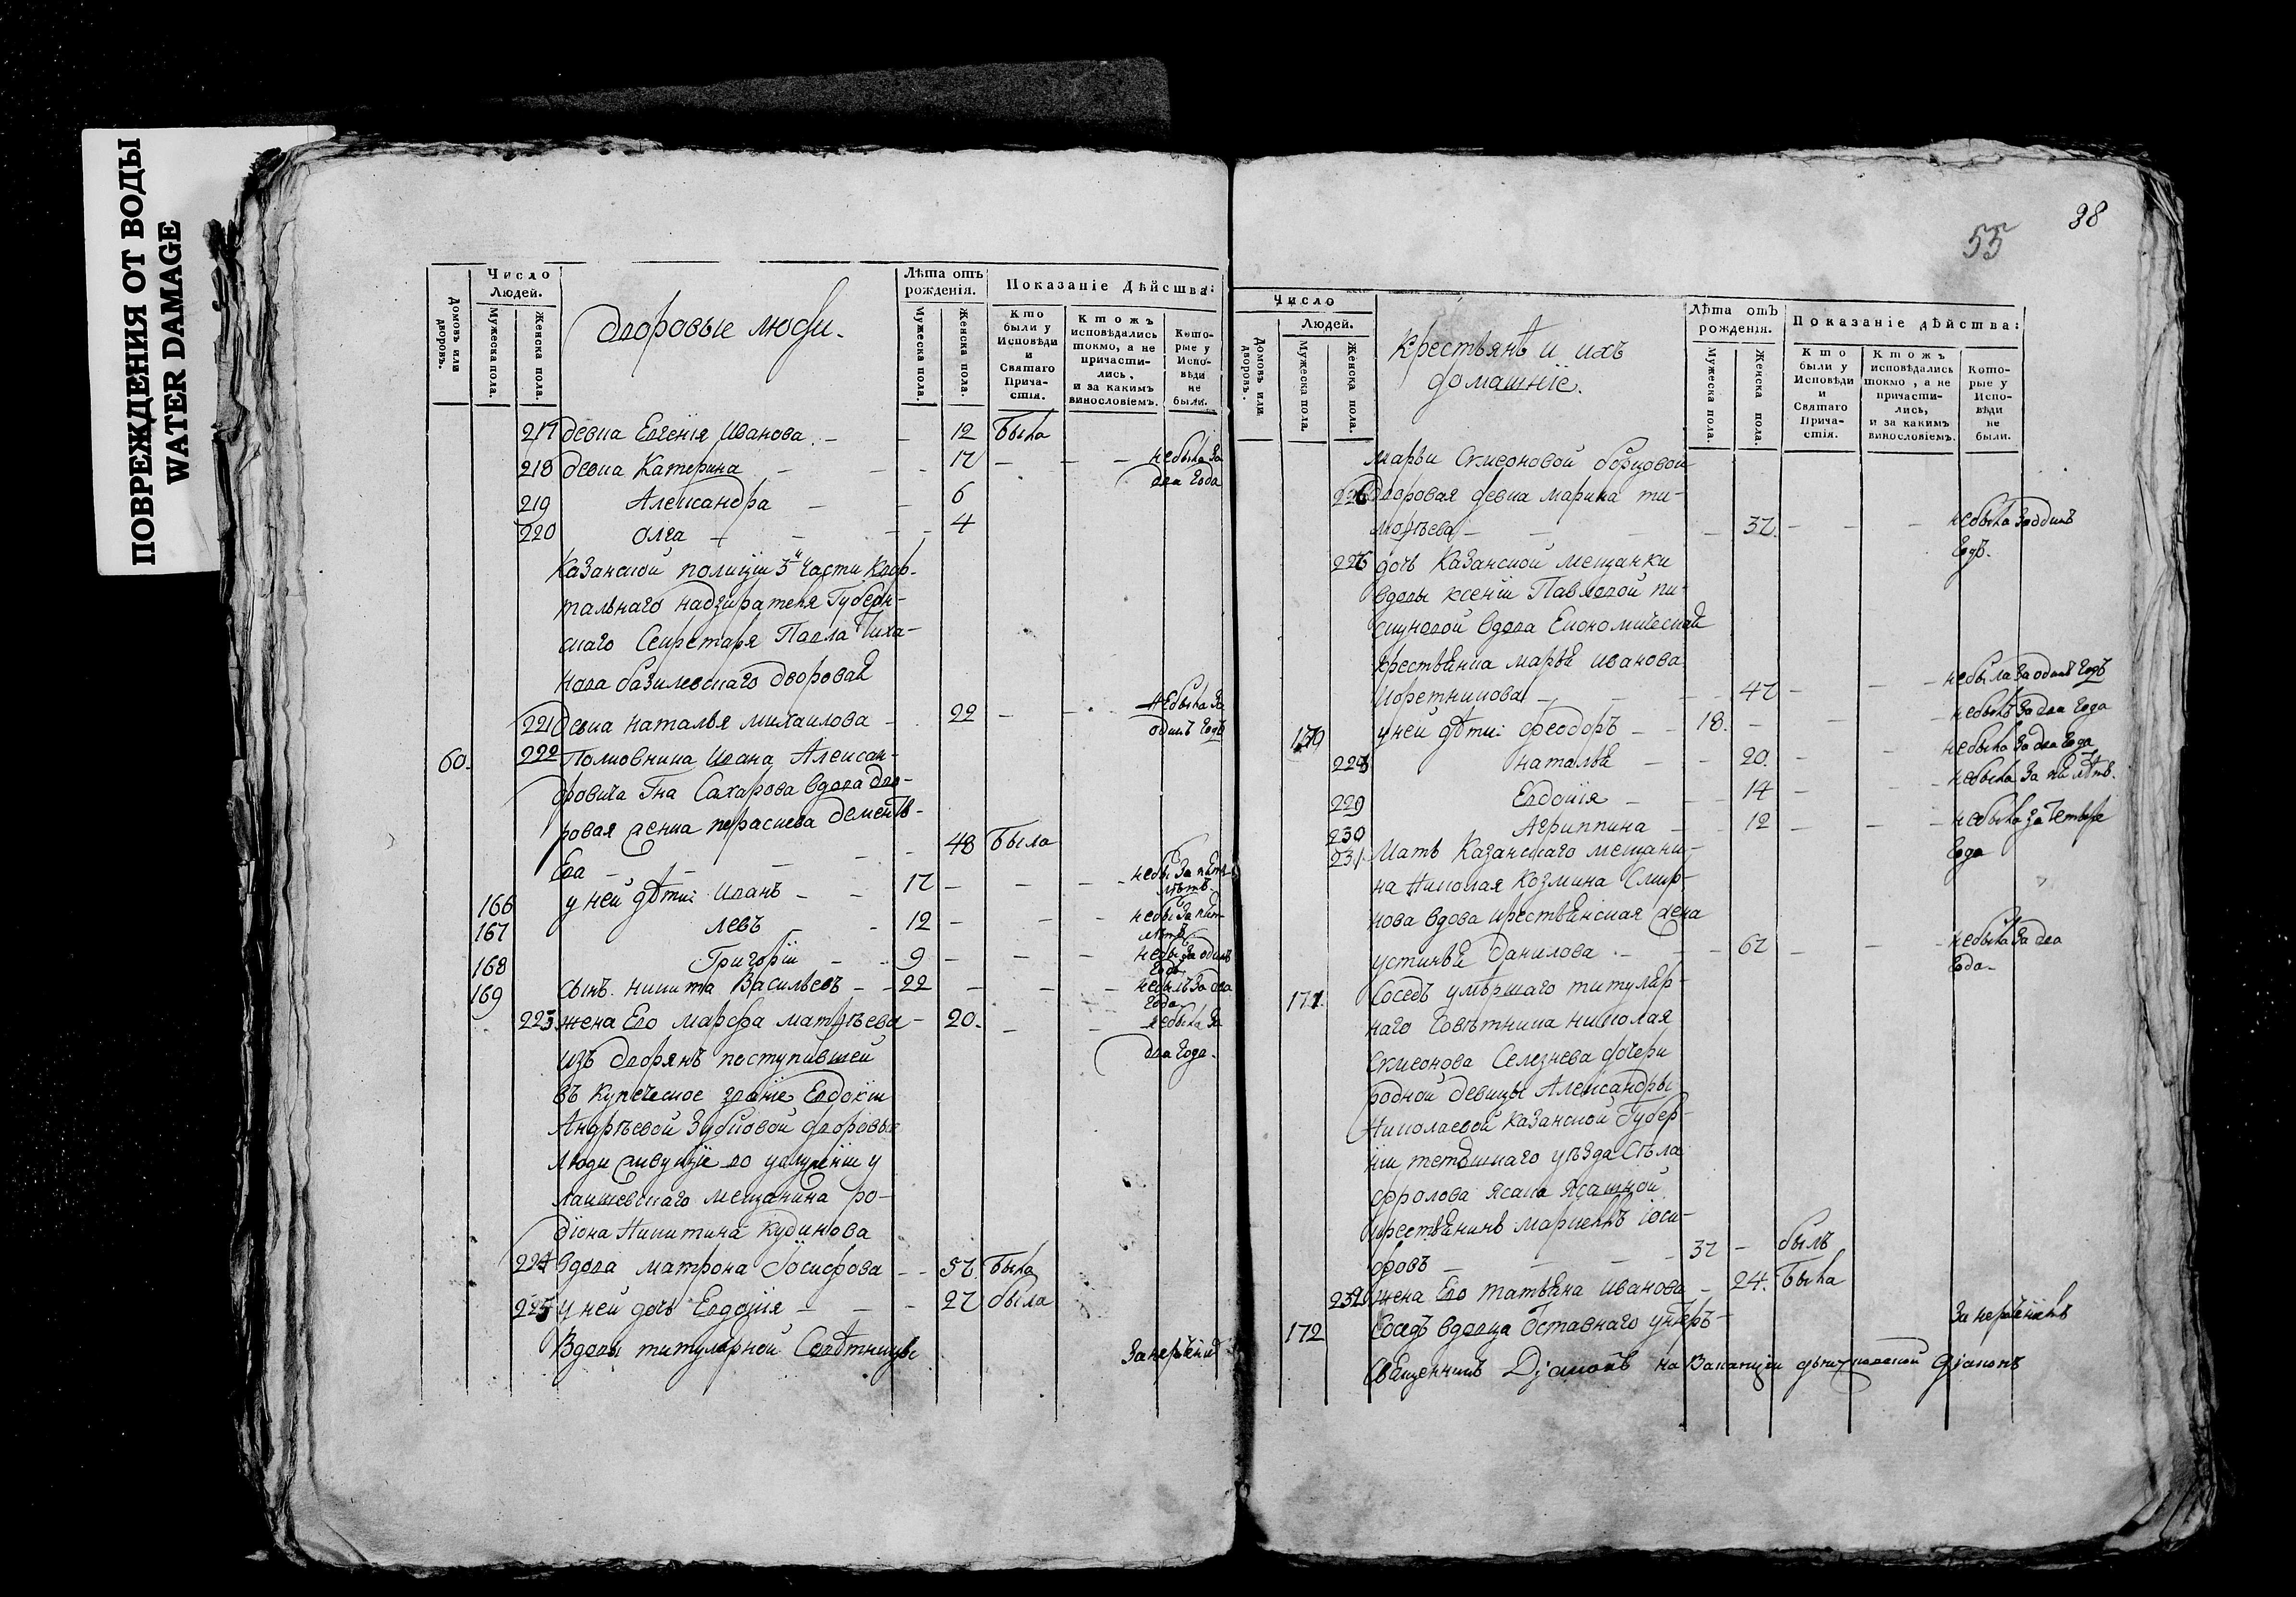 ПОВРЕЖДЕНИЯ ОТ ВОДЫ
WATER DAMAGE
Домовъ или дворовъ.
Число Людей.
Мужеска пола.
Женска пола.
Дворовые люди.
Лѣта отъ рожденія.
Мужеска пола.
Женска пола.
Показаніе Дѣйства:
Кто были у Исповѣди и Святаго Прича-стія.
Ктожъ исповѣдались токмо, а не причасти-лись, и за какимъ винословіемъ.
Кото-рые у Испо-вѣди не были.
217 девка Евгенія Иванова — — 12 была
218 девка Катерина — — 17 — — — небыла за
два года
219 Александра — — 6
220 Олга — — — 4
Казанской полиціи 3й части Квар-
тальнаго надзирателя Губерн-
скаго Секретаря Павла Тиха-
нова базилевскаго дворовая
221 девка наталья михаилова — 22 — — небыла за
одинъ годъ
60. 222 Полковника Ивана Алексан-
дровича Гна Сахарова вдова дво-
ровая женка параскева дементь-
ева — — — — 48 была
166 у ней дѣти: Иванъ — — 17 — — — небы. за пять
лѣтъ
167 левъ — 12 — — — небы за пять
лѣтъ
168 Григорій — — 9 — — — небы за одинъ
годъ
169 сынъ никита Васильевъ — — 22 — — — небылъ за два
года
223 жена Его марфа матфѣева — 20. — — небыла за
два года.
Изъ дворянъ поступившей
въ купеческое званіе Евдокіи
Андрѣевой Зубковой дворовые
люди живущіе во услуженіи у
лаишевскаго мещанина ро-
діона Никитина Кудинова
224 Вдова матрона Іосифова — — 57. была
225 у ней дочь Евдокія — — — 27 была
Вдовы титулярной Совѣтницы
38
55
Домовъ или дворовъ.
Число Людей.
Мужеска пола.
Женска пола.
Крестьянѣ и ихъ
домашніе.
Лѣта отъ рожденія.
Мужеска пола.
Женска пола.
Показаніе дѣйства:
Кто были у Исповѣди и Святаго Прича-стія.
Ктожъ исповѣдались токмо, а не причасти-лись, и за какимъ винословіемъ.
Кото-рые у Испо-вѣди не были.
марьи Симеоновой борцовой
226 дворовая девка марина ти-
мофѣева — — — — 37. — — — небыла за одинъ
годъ.
дочь Казанской мещанки
вдовы ксеніи Павловой пи-
скуновой вдова Економическая
крестьянка марья иванова
— — — 47 — — — небыла за одинъ годъ
у ней дѣти: Феодоръ — — 18. — — — небылъ за два года
наталья — — 20. — небыла за два года
229 Евдокія — — 14 — — небыла за лѣтъ.
230 Агриппина — — 12 — — — небыла за четыре
года
231 Мать Казанскаго мещани-
на Николая Козмина Смир-
нова вдова крестьянская жена
устинья Данилова — — — 67 — — — небыла за два
года —
171. Соседъ умѣршаго титуляр-
наго Совѣтника николая
Симеонова Селезнева дочери
родной девицы Александры
Николаевой Казанской Губер-
ніи тетюшскаго уѣзда Села
Фролова ясашной
крестьянинъ Іоси-
фовъ — — — 37 — былъ
232 жена Его татьяна иванова — 24. была
172 Соседъ вдовца Отставнаго унтеръ-
Священникъ Діаконъ на Вакансіи Діаконъ